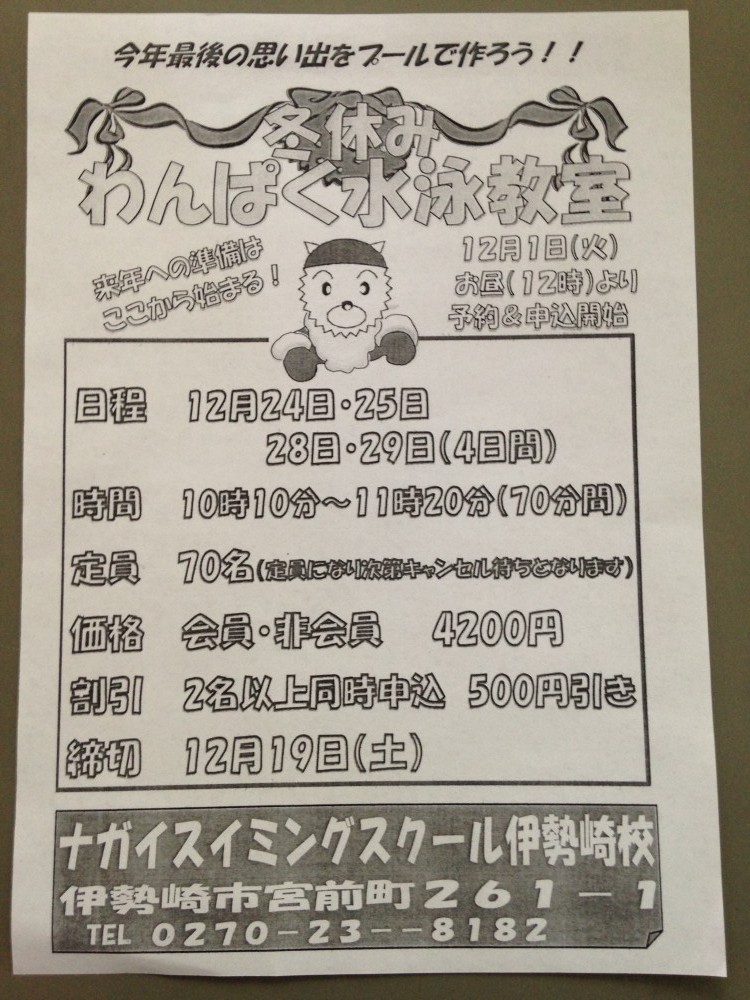 今年最後の思い出をプールで作ろう！！
冬休み
わんぱく水泳教室
来年への準備は
ここから始まる！
12月1日(火)
お昼(12時)より
予約＆申込開始
日程 12月24日・25日
28日・29日(4日間)
時間 10時10分～11時20分(70分間)
定員 70名(定員になり次第キャンセル待ちとなります)
価格 会員・非会員 4200円
割引 2名以上同時申込 500円引き
締切 12月19日(土)
ナガイスイミングスクール伊勢崎校
伊勢崎市宮前町261－1
TEL 0270－23－－8182